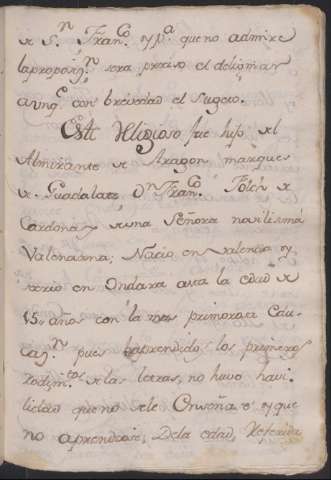 de S.n Fran.co y p.a que no admire
la proposiz.n sera preciso el
aunq.e con brevedad el Sugeto.
Este Religioso fue hijo del
Almirante de Aragon, marques
de Guadalate D.n Fran.co Folch de
Cardona y de una Señora novilisima
Valenciana; Nacio en Valencia y
se crio en Ondara asta la edad de
15. años con la mas primorosa Edu-
caz.n pues haprendidos los primeros
rudim.tos de las letras, no huvo havi-
lidad que no se le Enseña e y que
no aprendiese, De la edad, Referida